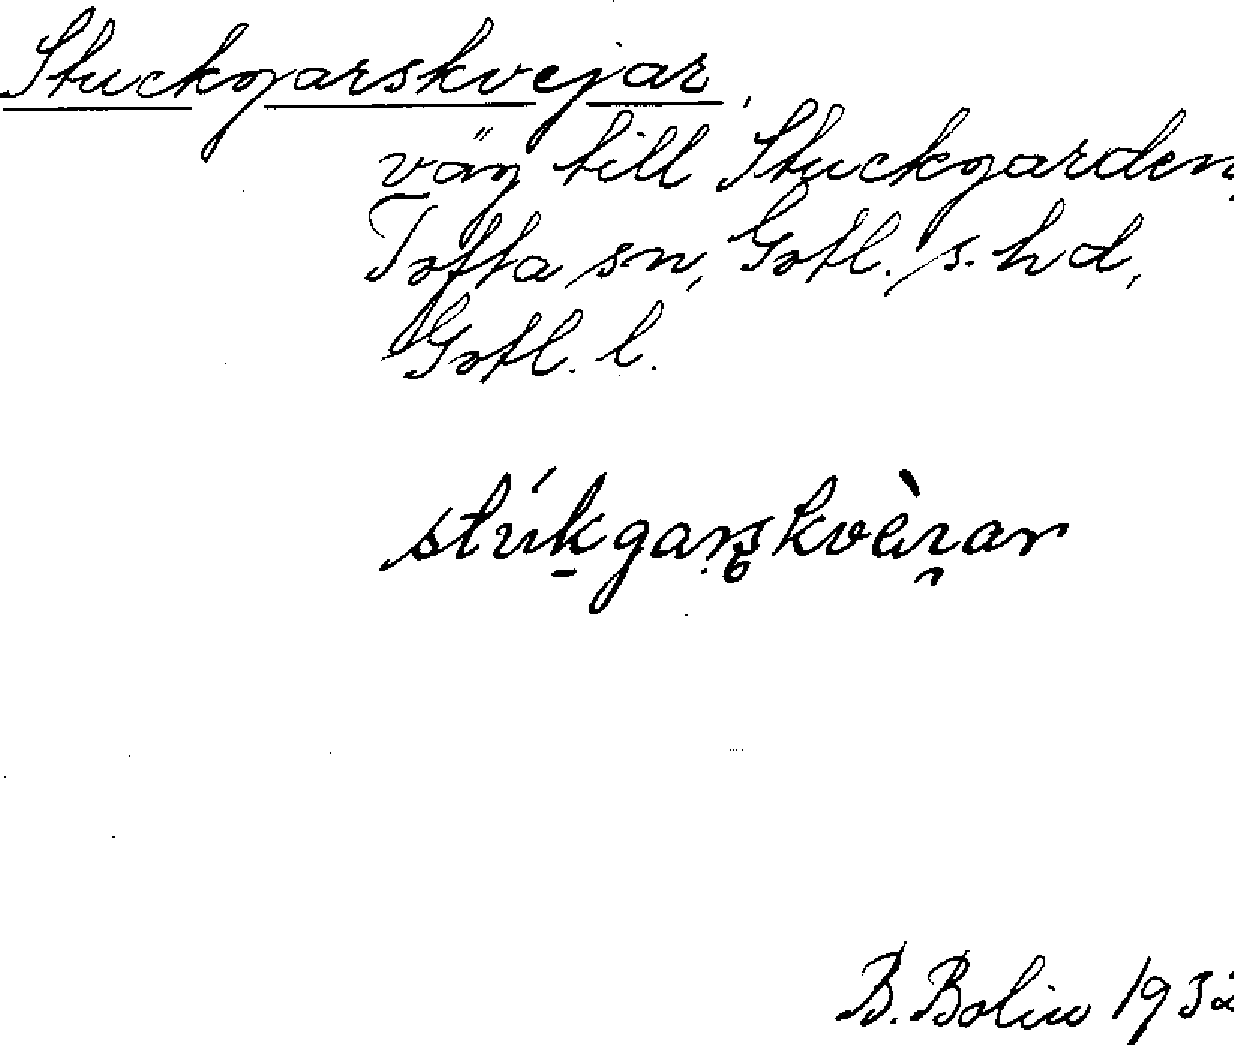 Stuckgarskvejar,
väg till Stuckgarden,
Tofta sn, Gotl. s. hd,
Gotl. l.
B. Bolin 1932